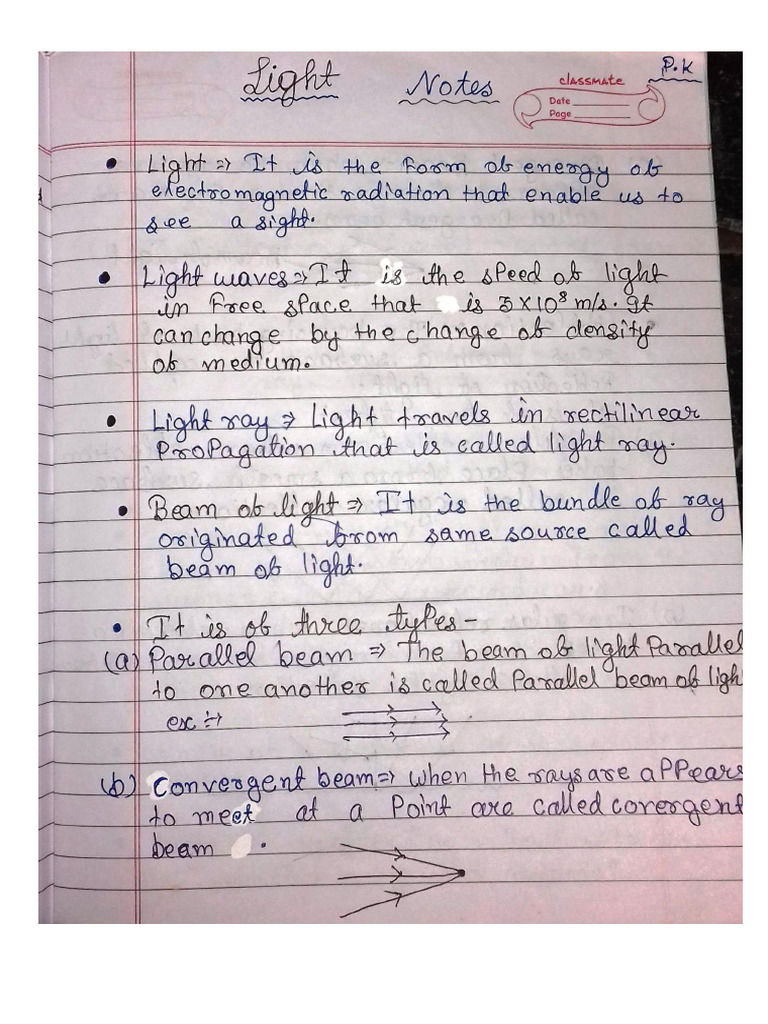 Light Notes
P.K
classmate
Date
Page
• Light ⇒ It is the form of energy of
electromagnetic radiation that enable us to
see a sight.
• Light waves ⇒ It is the speed of light
in free space that is 3×10⁸ m/s. It
can change by the change of density
of medium.
• Light ray ⇒ Light travels in rectilinear
Propagation that is called light ray.
• Beam of light ⇒ It is the bundle of ray
originated from same source called
beam of light.
• It is of three types -
(a) Parallel beam ⇒ The beam of light Parallel
to one another is called Parallel beam of ligh
ex :→
(b) Convergent beam ⇒ when the rays are appears
to meet at a Point are called covergent
beam .